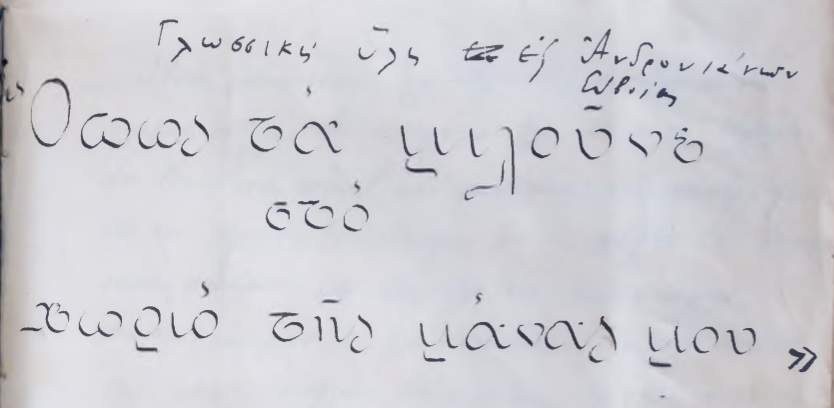 Γλωσσική ὕλη ἐξ Ἀνδρονιάνων
Εὐβοίας
Ὅπως τά μιλοῦνε
στό
χωριό τῆς μάνας μου »